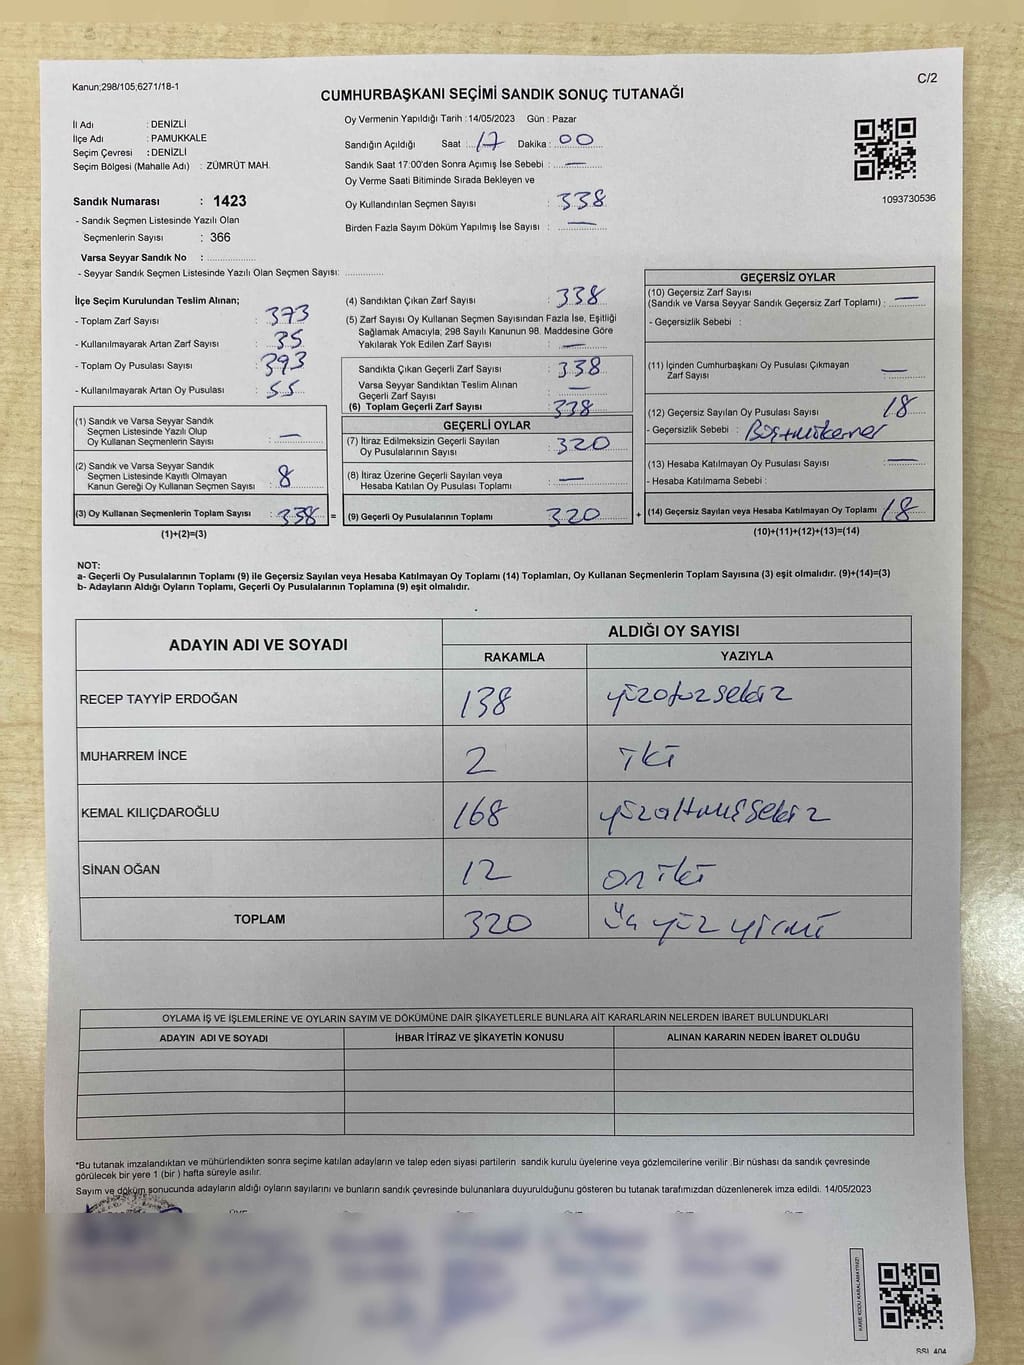 Kanun;298/105;6271/18-1
C/2
CUMHURBAŞKANI SEÇİMİ SANDIK SONUÇ TUTANAĞI
İl Adı : DENİZLİ
İlçe Adı : PAMUKKALE
Seçim Çevresi : DENİZLİ
Seçim Bölgesi (Mahalle Adı) : ZÜMRÜT MAH.
Oy Vermenin Yapıldığı Tarih :14/05/2023 Gün : Pazar
Sandığın Açıldığı Saat : 17 Dakika : 00
Sandık Saat 17:00'den Sonra Açımış İse Sebebi : —
Oy Verme Saati Bitiminde Sırada Bekleyen ve
Oy Kullandırılan Seçmen Sayısı : 338
Birden Fazla Sayım Döküm Yapılmış İse Sayısı : —
1093730536
Sandık Numarası : 1423
- Sandık Seçmen Listesinde Yazılı Olan
Seçmenlerin Sayısı : 366
Varsa Seyyar Sandık No : ..................
- Seyyar Sandık Seçmen Listesinde Yazılı Olan Seçmen Sayısı: ..............
İlçe Seçim Kurulundan Teslim Alınan;
- Toplam Zarf Sayısı : 373
- Kullanılmayarak Artan Zarf Sayısı : 35
- Toplam Oy Pusulası Sayısı : 393
- Kullanılmayarak Artan Oy Pusulası : 55
(1) Sandık ve Varsa Seyyar Sandık
Seçmen Listesinde Yazılı Olup
Oy Kullanan Seçmenlerin Sayısı : —
(2) Sandık ve Varsa Seyyar Sandık
Seçmen Listesinde Kayıtlı Olmayan
Kanun Gereği Oy Kullanan Seçmen Sayısı : 8
(3) Oy Kullanan Seçmenlerin Toplam Sayısı : 338 =
(1)+(2)=(3)
(4) Sandıktan Çıkan Zarf Sayısı : 338
(5) Zarf Sayısı Oy Kullanan Seçmen Sayısından Fazla İse, Eşitliği
Sağlamak Amacıyla, 298 Sayılı Kanunun 98. Maddesine Göre
Yakılarak Yok Edilen Zarf Sayısı : —
Sandıkta Çıkan Geçerli Zarf Sayısı : 338
Varsa Seyyar Sandıktan Teslim Alınan
Geçerli Zarf Sayısı : —
(6) Toplam Geçerli Zarf Sayısı : 338
GEÇERLİ OYLAR
(7) İtiraz Edilmeksizin Geçerli Sayılan
Oy Pusulalarının Sayısı : 320
(8) İtiraz Üzerine Geçerli Sayılan veya
Hesaba Katılan Oy Pusulası Toplamı : —
(9) Geçerli Oy Pusulalarının Toplamı 320 +
GEÇERSİZ OYLAR
(10) Geçersiz Zarf Sayısı
(Sandık ve Varsa Seyyar Sandık Geçersiz Zarf Toplamı) : —
- Geçersizlik Sebebi :
(11) İçinden Cumhurbaşkanı Oy Pusulası Çıkmayan
Zarf Sayısı : —
(12) Geçersiz Sayılan Oy Pusulası Sayısı : 18
- Geçersizlik Sebebi :
(13) Hesaba Katılmayan Oy Pusulası Sayısı : —
- Hesaba Katılmama Sebebi :
(14) Geçersiz Sayılan veya Hesaba Katılmayan Oy Toplamı 18
(10)+(11)+(12)+(13)=(14)
NOT:
a- Geçerli Oy Pusulalarının Toplamı (9) ile Geçersiz Sayılan veya Hesaba Katılmayan Oy Toplamı (14) Toplamları, Oy Kullanan Seçmenlerin Toplam Sayısına (3) eşit olmalıdır. (9)+(14)=(3)
b- Adayların Aldığı Oyların Toplamı, Geçerli Oy Pusulalarının Toplamına (9) eşit olmalıdır.
ADAYIN ADI VE SOYADI
ALDIĞI OY SAYISI
RAKAMLA YAZIYLA
RECEP TAYYİP ERDOĞAN 138 yüzotuzsekiz
MUHARREM İNCE 2 iki
KEMAL KILIÇDAROĞLU 168 yüzaltmışsekiz
SİNAN OĞAN 12 on iki
TOPLAM 320 üç yüz yirmi
OYLAMA İŞ VE İŞLEMLERİNE VE OYLARIN SAYIM VE DÖKÜMÜNE DAİR ŞİKAYETLERLE BUNLARA AİT KARARLARIN NELERDEN İBARET BULUNDUKLARI
ADAYIN ADI VE SOYADI İHBAR İTİRAZ VE ŞİKAYETİN KONUSU ALINAN KARARIN NEDEN İBARET OLDUĞU
*Bu tutanak imzalandıktan ve mühürlendikten sonra seçime katılan adayların ve talep eden siyasi partilerin sandık kurulu üyelerine veya gözlemcilerine verilir .Bir nüshası da sandık çevresinde
görülecek bir yere 1 (bir ) hafta süreyle asılır.
Sayım ve döküm sonucunda adayların aldığı oyların sayılarını ve bunların sandık çevresinde bulunanlara duyurulduğunu gösteren bu tutanak tarafımızdan düzenlenerek imza edildi. 14/05/2023
KARE KODU KARALAMAYINIZ!